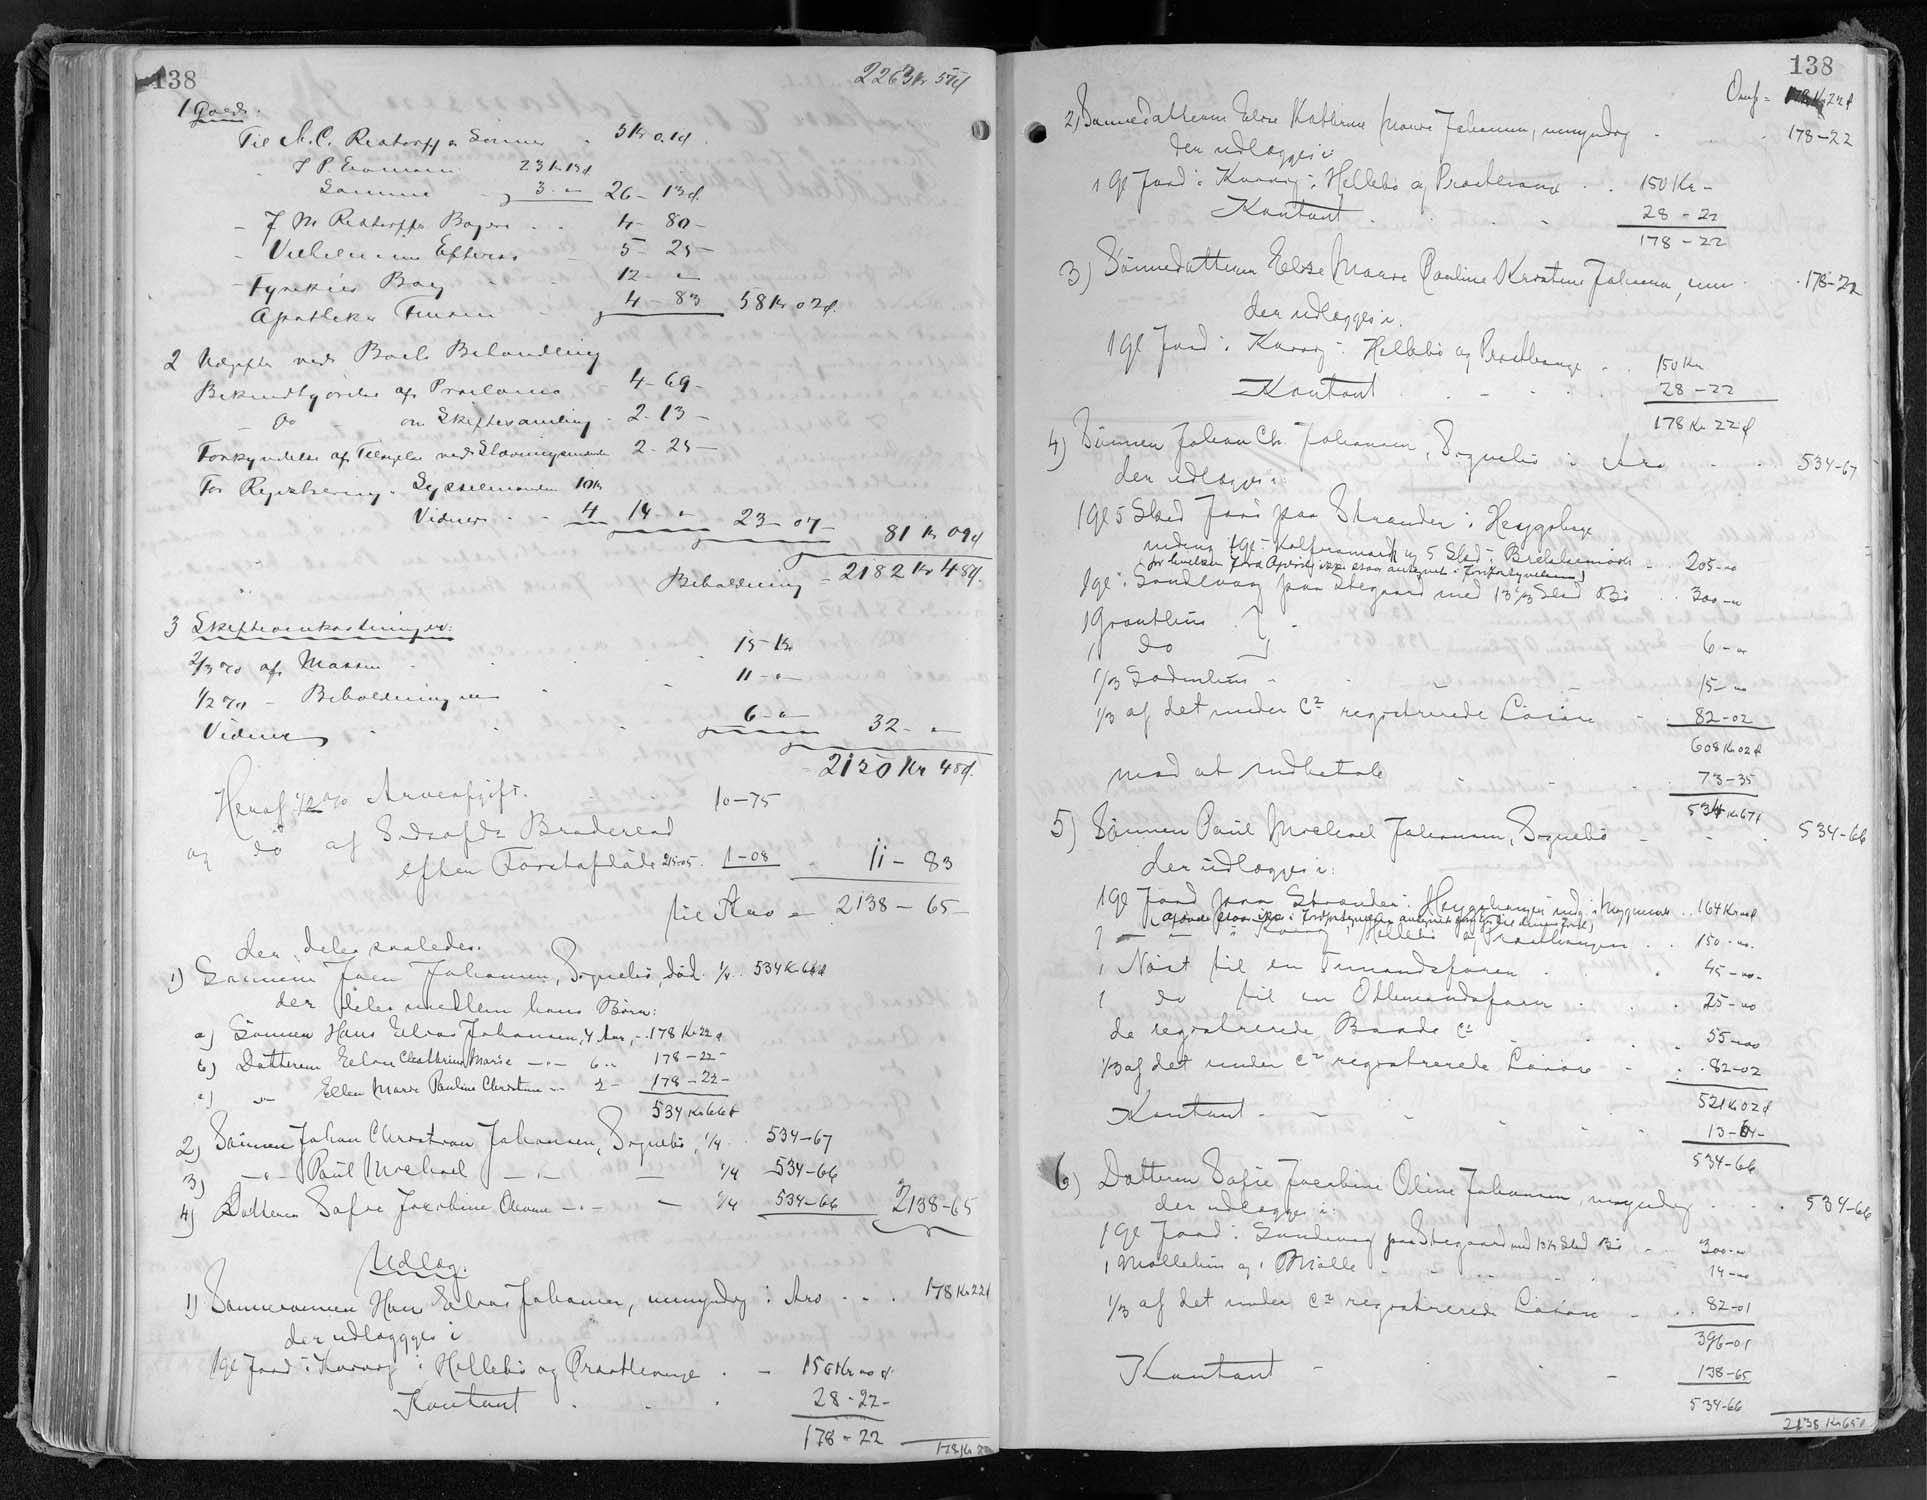 138
2263 Kr 57 d
1 Gæld.
Til A. C. Restorff & Sønner 5 Kr 01 d
J P. 23 Kr 13 d
Samme 3 - " 26 - 13 d
- J M Restorffs Bageri 4 - 80 -
- Efterf 5 - 25 -
12 - "
Apotheker 4 - 83 58 Kr 02 d.
2 Udgifter ved Boets Behandling
Bekendtgørelse af Proclama 4 - 69 -
- Do om Skiftesamling 2 - 13 -
Forkyndelse af ved Stævningsmænd 2 - 25 -
For Registrering. Sysselmanden 10 Kr
Vidner - - 4 14 - " 23 - 07 - 81 Kr 09 d
Beholdning - 2182 Kr 48 d.
3 Skifteomkostninger:
2/3 % af Massen 15 - Kr
1/2 % - Beholdningen 11 - "
Vidner 6 - " 32 - "
2150 Kr 48 d.
Heraf 1/2 % Arveafgift. 10 - 75
og do af Boderead
efter 215-05. 1 - 08 11 - 83
til Arv - 2138 - 65 -
der deles saaledes.
1) Sønnen Joen Johansen, Sygnebø, død. 1/4 534 Kr 66 d
der deles mellem hans Børn:
a) Sønnen Hans Elias Johansen, 4 Aar, - 178 Kr 22 d
b) Datteren Cathrine Marie - " - 6 - 178 - 22 -
c) - " - Ellen Marie Pauline Christine - " - 2 - 178 - 22 -
534 Kr 66 d
2) Sønnen Johan Christian Johansen, Sygnebø, 1/4 534 - 67
3) - " - Paul Michael - " - 1/4 534 - 66
4) Datteren Sofie Jacobine - " - 1/4 534 - 66 2138 - 65
Udlæg.
1) Sønnesønnen Hans Elias Johansen, umyndig i Arv - . . 178 Kr 22 d
der udlægges i
1 gl Jord i Kvarv i Hellebø og 150 Kr 00 d
Kontant 28 - 22 -
178 - 22
178 Kr 22
138
Overf = 178 Kr 22 d
2) Sønnedatteren Else Kathrine Marie Johansen, umyndig 178 - 22
der udlægges i
1 gl Jord i Kvarv i Hellebø og 150 Kr -
Kontant 28 - 22
178 - 22
3) Sønnedatteren Else Marie Pauline Kristine Johansen, um 178 - 22
der udlægges i.
1 gl Jord i Kvarv i Hellebø og 150 Kr
Kontant 28 - 22
178 Kr 22 d
4) Sønnen Johan Ch. Johansen, Sygnebø i Arv 534 - 67
der udlægges i
1 gl 5 Skind Jord paa Strænder i
og 5 Skind 205 - 00
1 gl i Sandevaag paa Stegaard med 13 1/3 Skind Bø 300 - "
1 Grønthus
1 do 6 - "
1/3 15 - "
1/3 af det under C2 registrerede Løsøre 82 - 02
608 Kr 02 d
mod at indbetale 73 - 35
534 Kr 67 d
5) Sønnen Paul Michael Johansen, Sygnebø 534 - 66
der udlægges i:
1 gl Jord paa Strænder i 164 Kr 00 d
1 - - i Kvarv i Hellebø og 150 - 00.
1 Nøst til en Timandsfarer 45 - 00 -
1 do til en Ottemandsfarer 25 - 00
de registrerede Baade C1 55 - 00
1/3 af det under C2 registrerede Løsøre 82 - 02
521 Kr 02 d
Kontant 13 - 64 -
534 - 66
6) Datteren Sofie Jacobine Oline Johansen, umyndig 534 - 66
der udlægges i:
1 gl Jord i Sandevaag paa Stegaard med 13 1/3 Skind Bø 300 - "
1 Møllehus og 1 Mølle 14 - 00
1/3 af det under C2 registrerede Løsøre 82 - 01
396 - 01
Kontant 138 - 65
534 - 66
2138 Kr 65 d